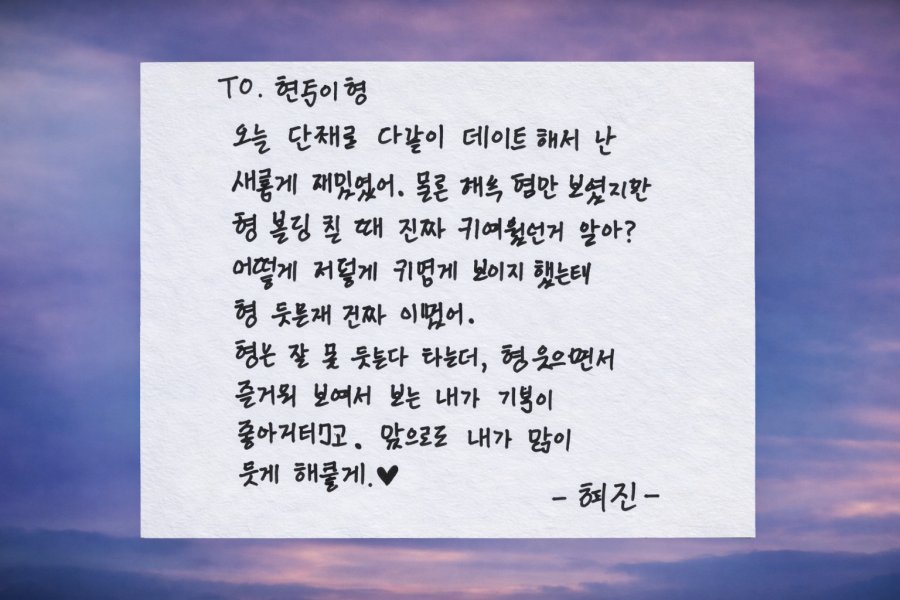 TO. 현둡이형
오늘 단재로 다같이 데이트해서 난
새롭게 재밌었어. 물론 해윽 형만 보였지만
형 볼딩 칠 때 진짜 귀여웠던거 알아?
어떻게 저렇게 귀엽게 보이지 했는데
형 웃는게 진짜 이뻤어.
형은 잘 못 웃는다 하는데, 형 웃으면서
즐거워 보여서 보는 내가 기분이
좋아지더고. 앞으로도 내가 많이
웃게 해줄게.♥
- 혀진 -